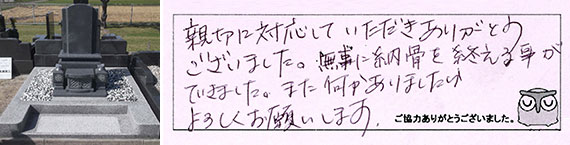 親切に対応していただきありがとう
ございました。無事に納骨を終える事が
できました。また何かありましたら
よろしくお願いします.
ご協力ありがとうございました。